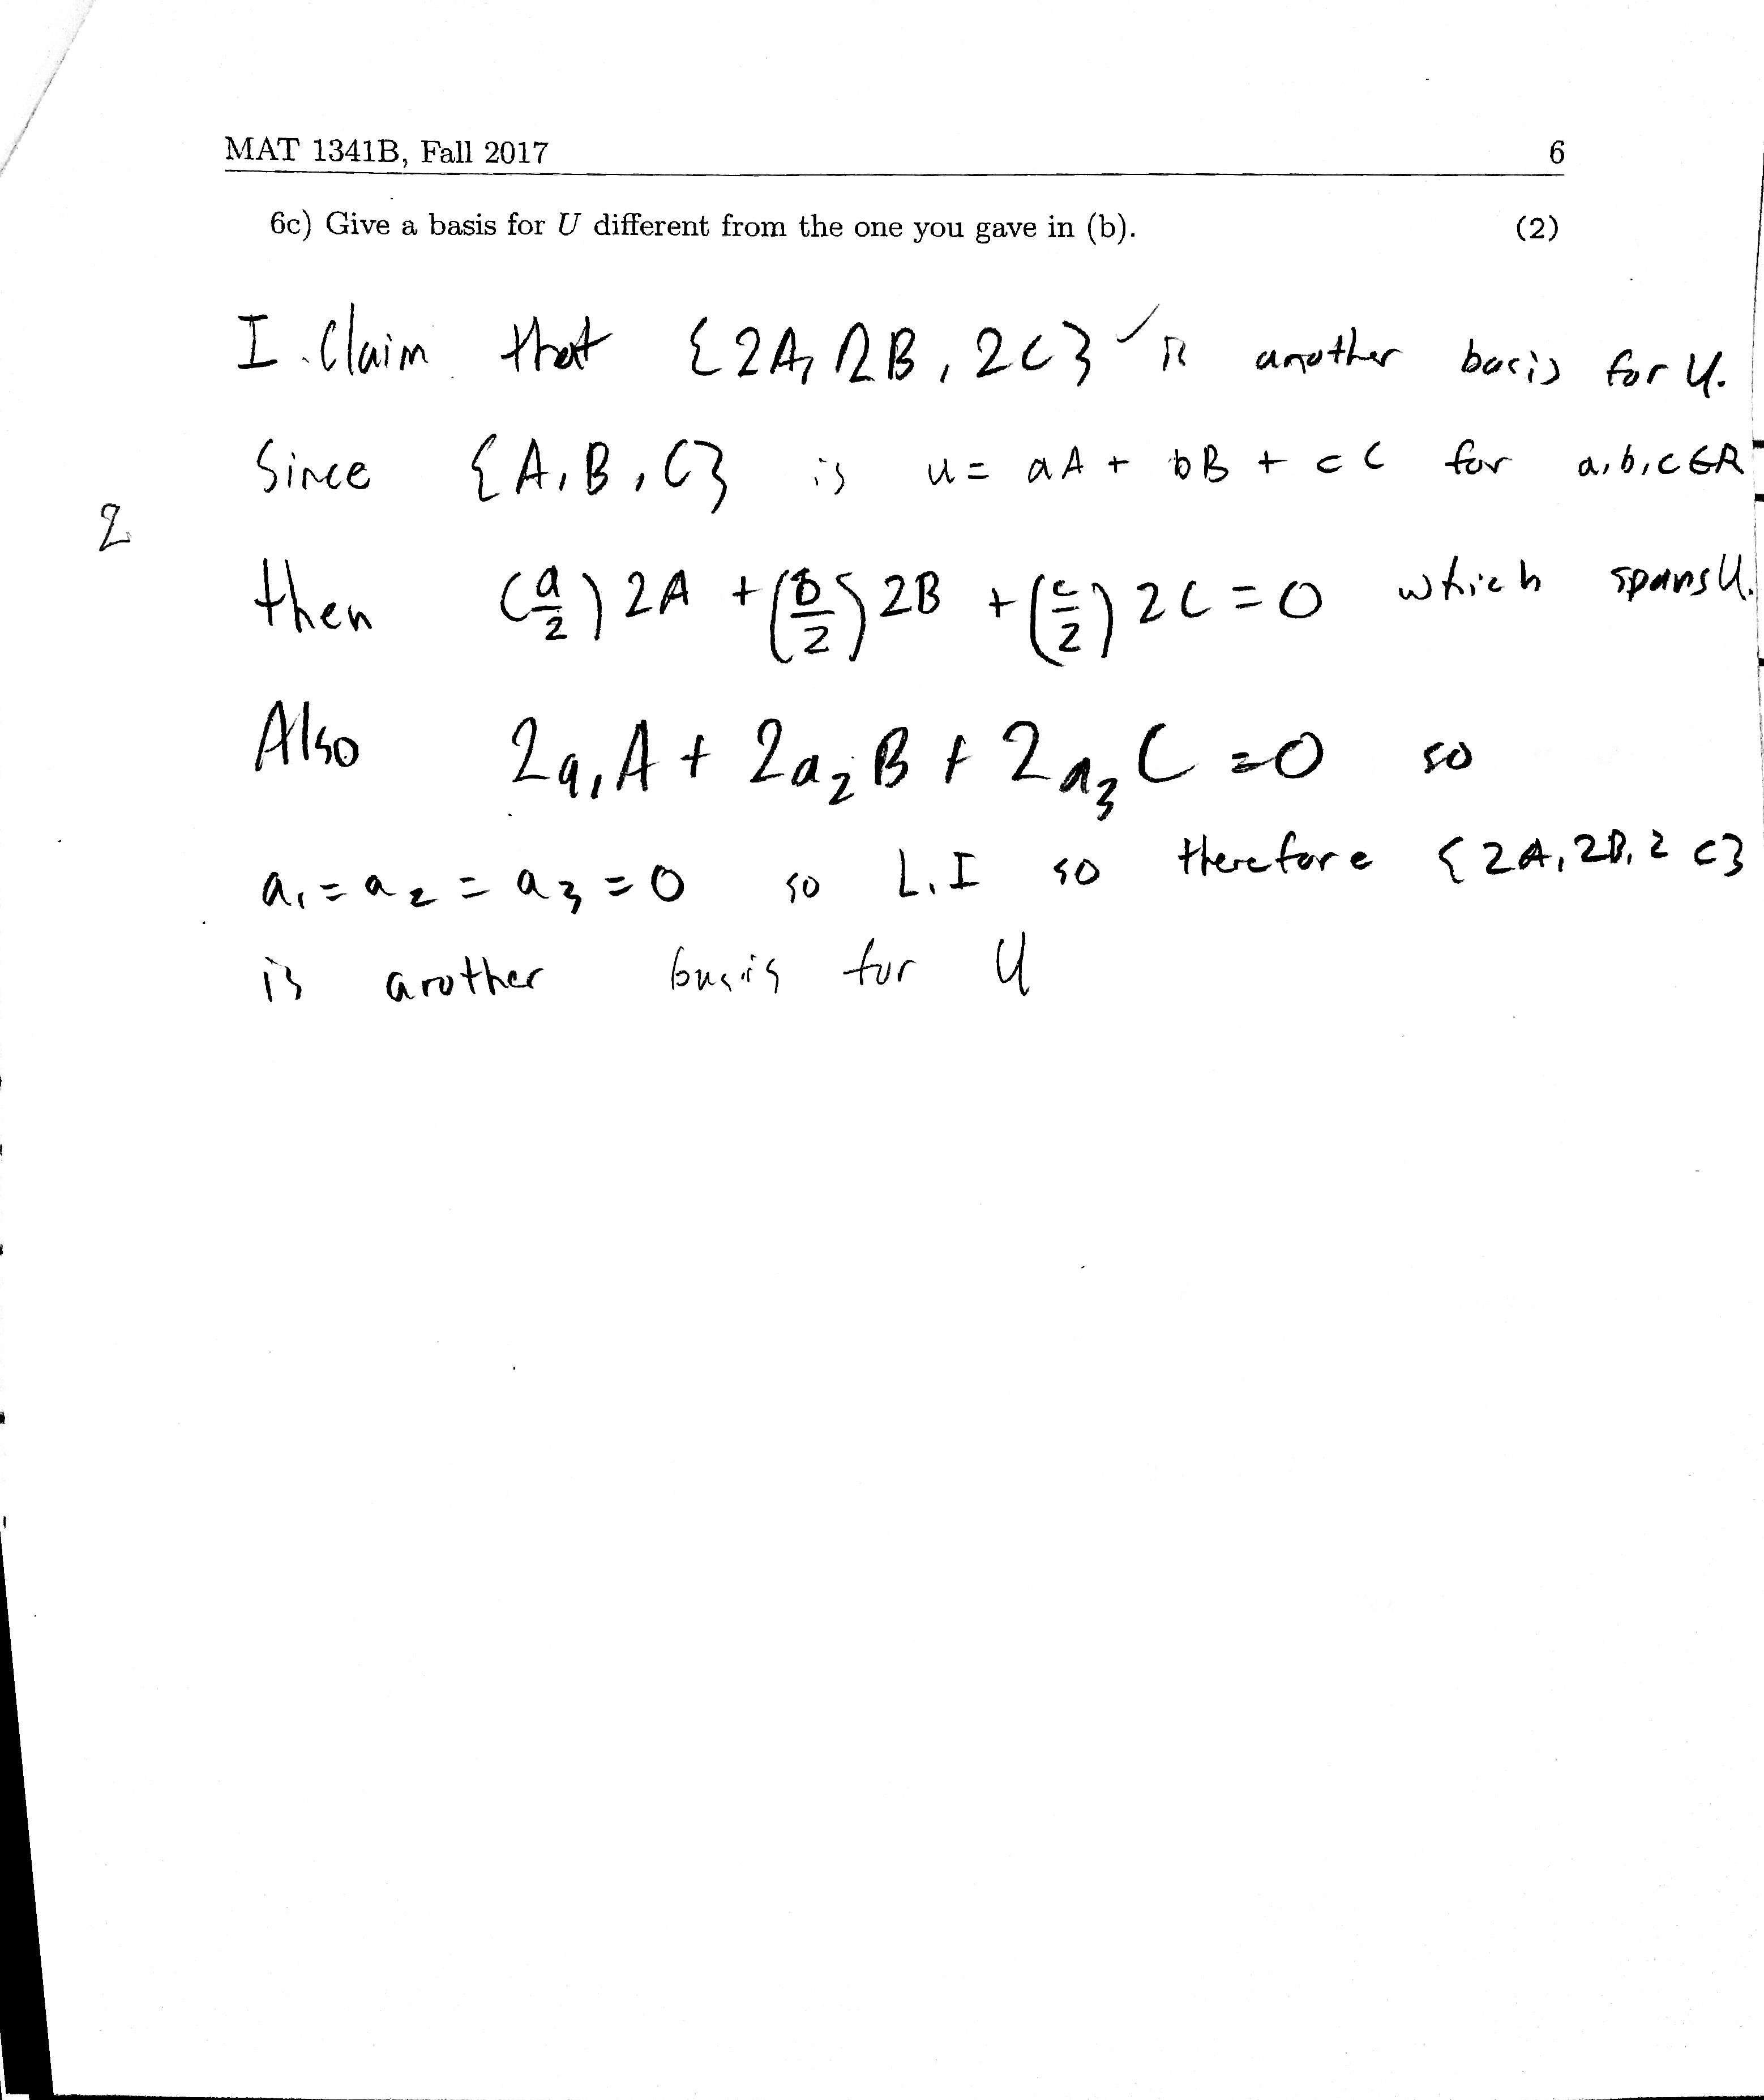 MAT 1341B, Fall 2017 6
6c) Give a basis for U different from the one you gave in (b). (2)
I Claim that {2A, 2B, 2C} ✓ is another basis for U.
Since {A, B, C} is u = aA + bB + cC for a,b,c ∈ R
2
then (a/2) 2A + (b/2) 2B + (c/2) 2C = 0 which spans U.
Also 2a₁A + 2a₂B + 2a₃C = 0 so
a₁ = a₂ = a₃ = 0 so L.I so therefore {2A, 2B, 2C}
is another basis for U